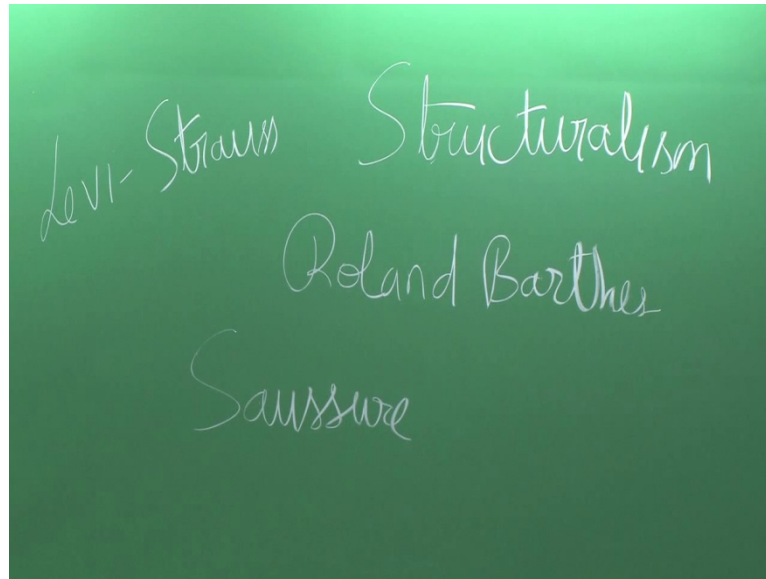 Levi-Strauss Structuralism
Roland Barthes
Saussure